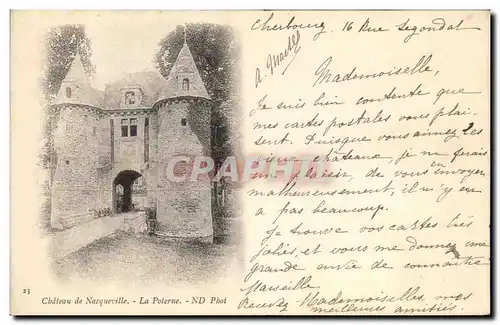 Cherbourg, 16 Rue Segondat
A. Martel
Mademoiselle,
Je suis bien contente que
mes cartes postales vous plai-
sent. Puisque vous aimez les
vieux châteaux, je me ferais
un plaisir, de vous en envoyer
malheureusement, il n'y en
a pas beaucoup.
Je trouve vos cartes très
jolies, et vous me donnez une
grande envie de connaître
Marseille.
Recevez Mademoiselle, mes
meilleures amitiés.
CARTOPHILIA
23
Château de Nacqueville. - La Poterne. - ND Phot